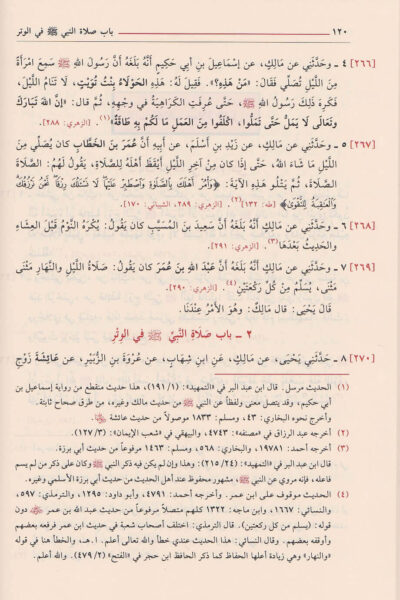 ١٢٠ باب صلاة النبي ﷺ في الوتر
[٢٦٦] ٤ ـ وحَدَّثَنِي عن مَالِكٍ، عن إِسْمَاعِيلَ بنِ أبي حَكِيمٍ أَنَّهُ بَلَغَهُ أَنَّ رَسُولَ اللهِ ﷺ سَمِعَ امْرَأَةً
مِنَ اللَّيْلِ تُصَلِّي فَقَالَ: «مَنْ هَذِهِ؟». فَقِيلَ لَهُ: هَذِهِ الحَوْلَاءُ بِنْتُ تُوَيْتٍ، لَا تَنَامُ اللَّيْلَ،
فَكَرِهَ ذَلِكَ رَسُولُ اللهِ ﷺ، حَتَّى عُرِفَتِ الكَرَاهِيَةُ في وَجْهِهِ، ثُمَّ قال: «إِنَّ اللهَ تَبَارَكَ
وَتَعَالَى لَا يَمَلُّ حَتَّى تَمَلُّوا، اكْلَفُوا مِنَ العَمَلِ مَا لَكُمْ بِهِ طَاقَةٌ»(١). [الزهري: ٢٨٨].
[٢٦٧] ٥ ـ وحَدَّثَنِي عن مَالِكٍ، عن زَيْدِ بنِ أَسْلَمَ، عن أَبِيهِ أَنَّ عُمَرَ بنَ الخَطَّابِ كان يُصَلِّي مِنَ
اللَّيْلِ مَا شَاءَ اللهُ، حَتَّى إذَا كان مِنْ آخِرِ اللَّيْلِ أَيْقَظَ أَهْلَهُ لِلصَّلَاةِ، يَقُولُ لَهُمْ: الصَّلَاةَ
الصَّلَاةَ، ثُمَّ يَتْلُو هَذِهِ الآيَةَ: ﴿وَأْمُرْ أَهْلَكَ بِالصَّلَوٰةِ وَاصْطَبِرْ عَلَيْهَا لَا نَسْـَٔلُكَ رِزْقًا نَّحْنُ نَرْزُقُكَ
وَالْعَاقِبَةُ لِلتَّقْوَىٰ﴾ [طه: ١٣٢](٢). [الزهري: ٢٨٩، الشيباني: ١٧٠].
[٢٦٨] ٦ ـ وحَدَّثَنِي عن مَالِكٍ أَنَّهُ بَلَغَهُ أَنَّ سَعِيدَ بنَ المُسَيَّبِ كان يَقُولُ: يُكْرَهُ النَّوْمُ قَبْلَ العِشَاءِ
والحَدِيثُ بَعْدَهَا(٣). [الزهري: ٢٩١].
[٢٦٩] ٧ ـ وحَدَّثَنِي عن مَالِكٍ أَنَّهُ بَلَغَهُ أَنَّ عَبْدَ اللهِ بنَ عُمَرَ كان يَقُولُ: صَلَاةُ اللَّيْلِ وَالنَّهَارِ مَثْنَى
مَثْنَى، يُسَلِّمُ مِنْ كُلِّ رَكْعَتَيْنِ(٤). [الزهري: ٢٩٠].
قَالَ يَحْيَى: قال مَالِكٌ: وهُوَ الأَمْرُ عِنْدَنَا.
٢ ـ باب صَلَاةِ النَّبيِّ ﷺ في الوِتْرِ
[٢٧٠] ٨ ـ حَدَّثَنِي يَحْيَى، عن مَالِكٍ، عَنِ ابنِ شِهَابٍ، عن عُرْوَةَ بنِ الزُّبَيْرِ، عن عَائِشَةَ زَوْجِ
(١) الحديث مرسل. قال ابن عبد البر في «التمهيد»: (١٩١/١)، هذا حديث منقطع من رواية إسماعيل بن
أبي حكيم، وقد يتصل معنى ولفظاً عن النبي ﷺ من حديث مالك وغيره، من طرق صحاح ثابتة.
وأخرج نحوه البخاري: ٤٣، ومسلم: ١٨٣٣ موصولاً من حديث عائشة
(٢) أخرجه عبد الرزاق في «مصنفه»: ٤٧٤٣، والبيهقي في «شعب الإيمان»: (١٢٧/٣).
(٣) أخرجه أحمد: ١٩٧٨١، والبخاري: ٥٦٨، ومسلم: ١٤٦٣ مرفوعاً من حديث أبي برزة.
قال ابن عبد البر في «التمهيد»: (٢١٥/٢٤): وهذا وإن لم يكن فيه ذكر النبي ﷺ وكان على ذكر من لم يسم
فاعله، فإنه مروي عن النبي ﷺ، مشهور محفوظ عند أهل الحديث من حديث أبي برزة الأسلمي وغيره.
(٤) الحديث موقوف على ابن عمر. وأخرجه أحمد: ٤٧٩١، وأبو داود: ١٢٩٥، والترمذي: ٥٩٧،
والنسائي: ١٦٦٧، وابن ماجه: ١٣٢٢ كلهم متصلاً مرفوعاً من حديث عبد الله بن عمر ﷺ دون
قوله: (يسلم من كل ركعتين). قال الترمذي: اختلف أصحاب شعبة في حديث ابن عمر فرفعه بعضهم
وأوقفه بعضهم. وقال النسائي: هذا الحديث عندي خطأ والله تعالى أعلم. ا.هـ، والخطأ هنا في قوله
«والنهار» وهي زيادة أعلها الحفاظ كما ذكر الحافظ ابن حجر في «الفتح» (٤٧٩/٢). والله أعلم.